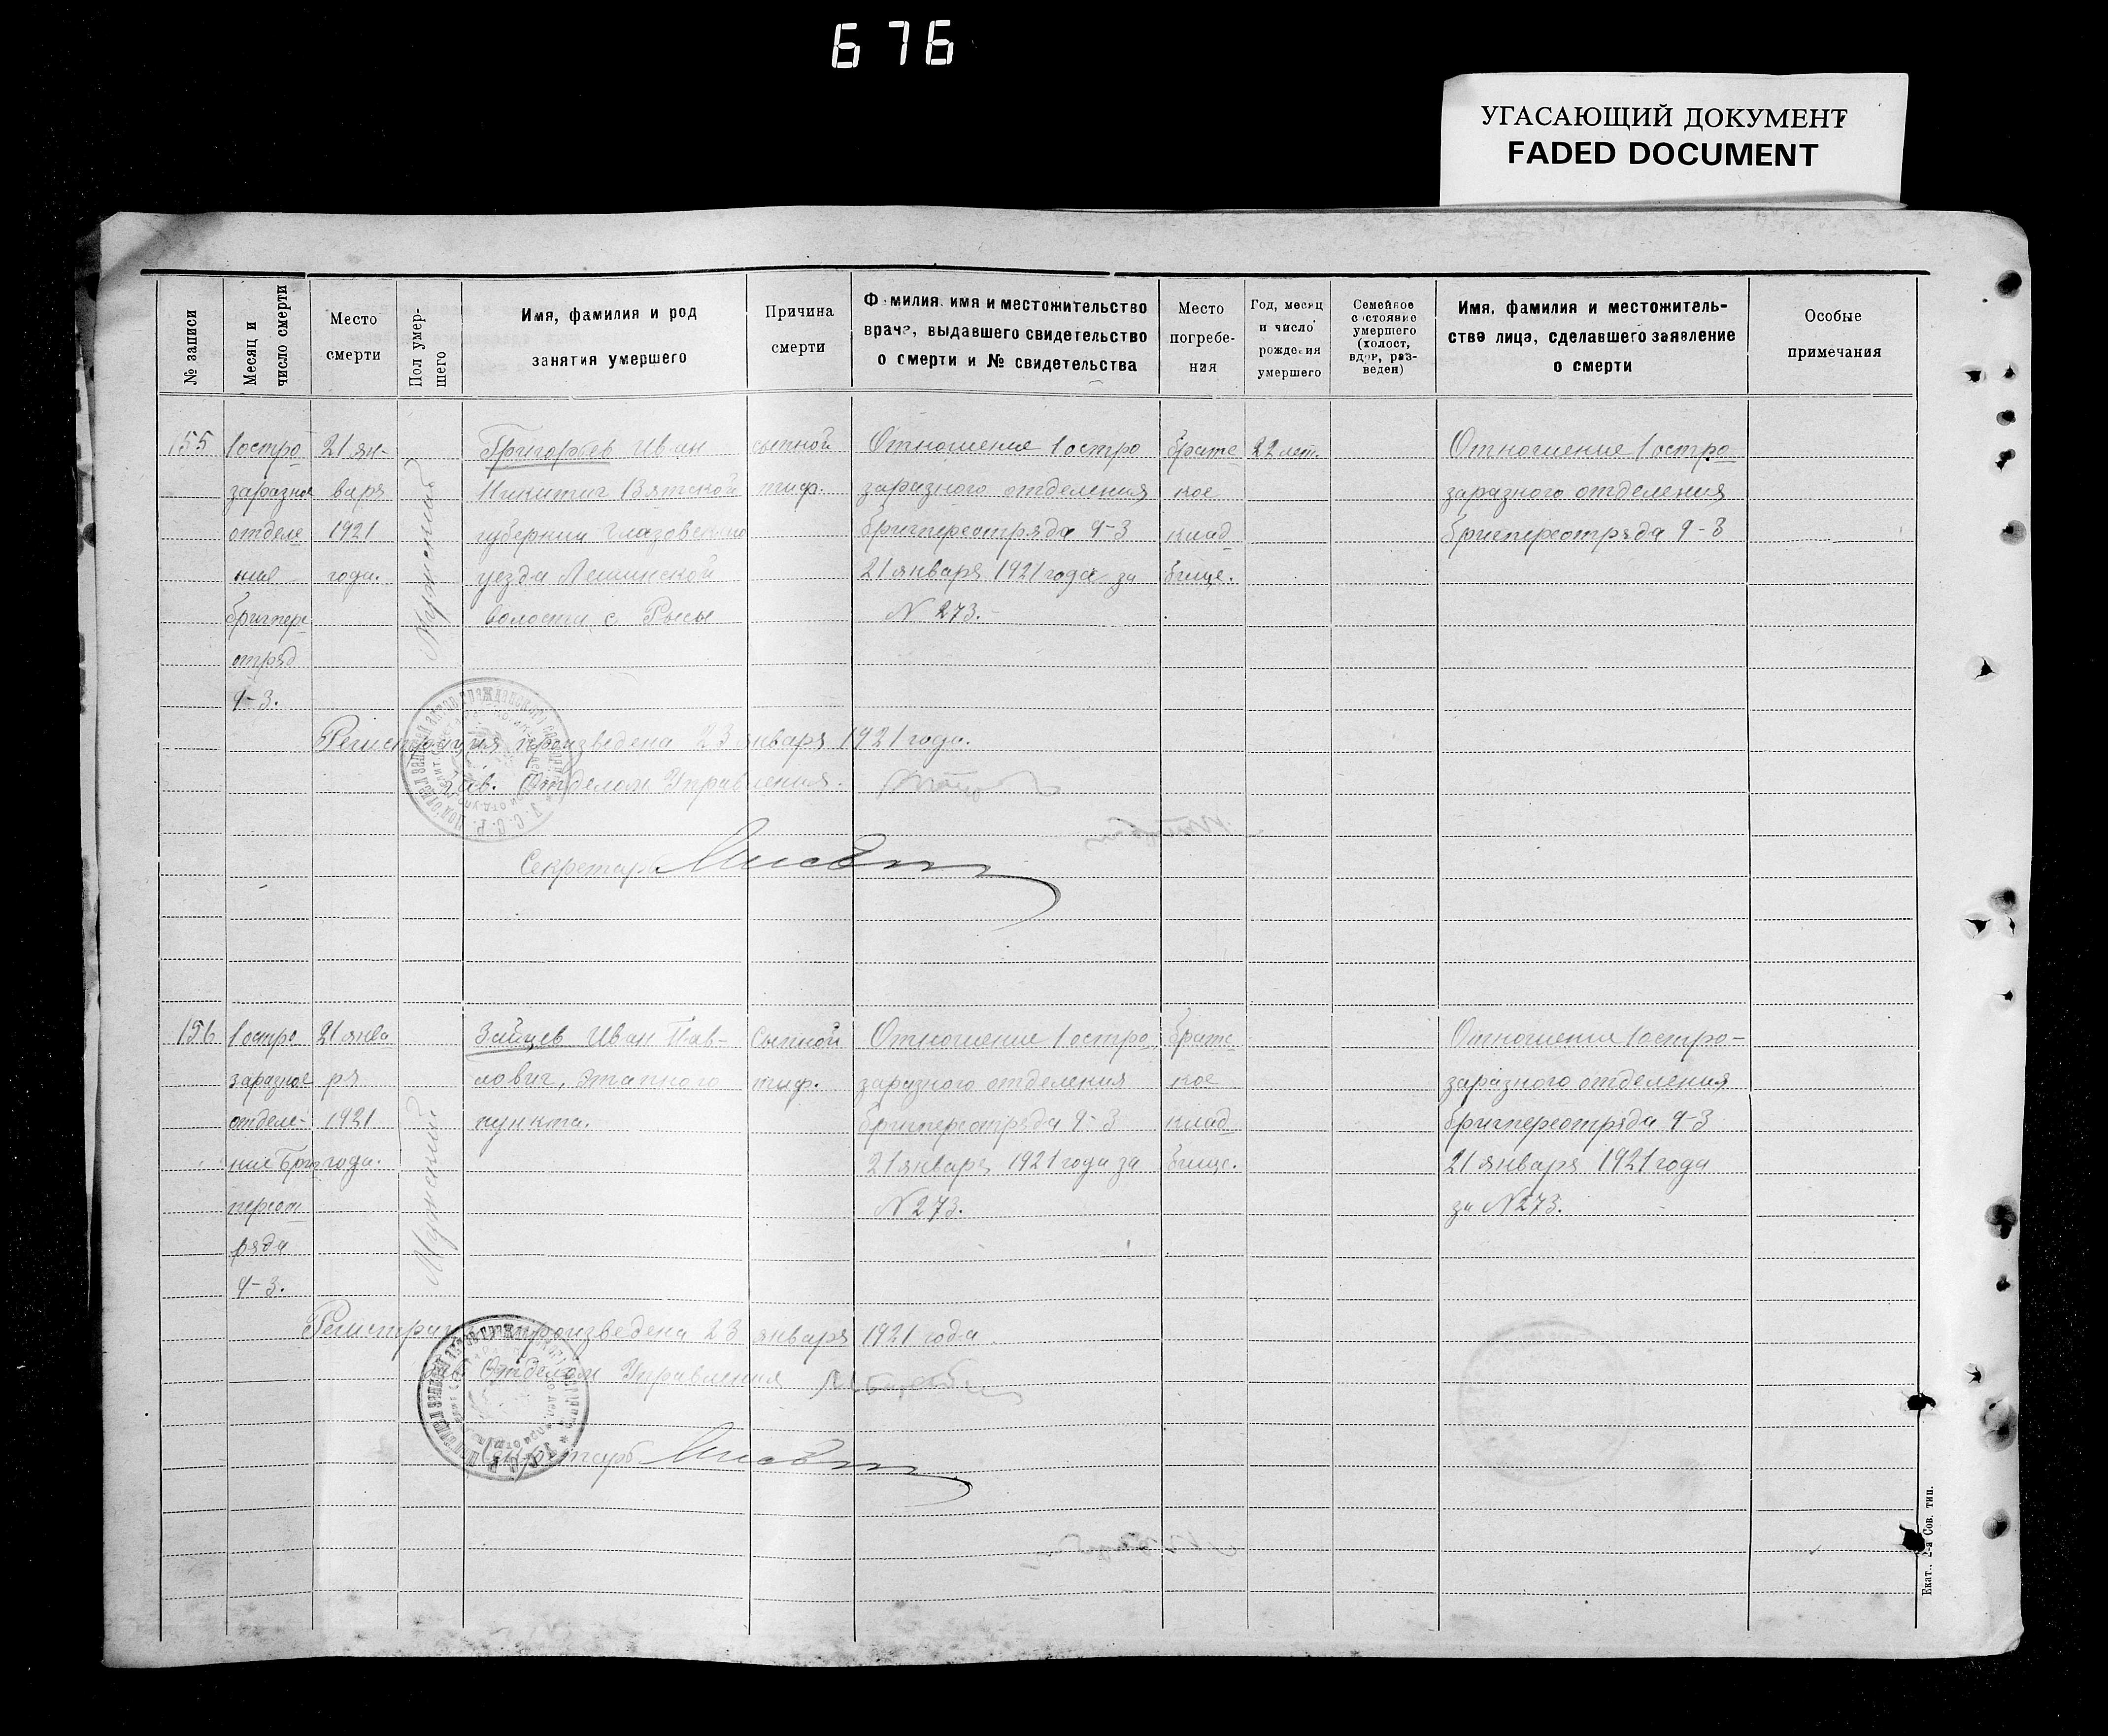 676
УГАСАЮЩИЙ ДОКУМЕНТ
FADED DOCUMENT
№ записи
Месяц и
число смерти
Место
смерти
Пол умер-
шего
Имя, фамилия и род
занятия умершего
Причина
смерти
Фамилия, имя и местожительство
врача, выдавшего свидетельство
о смерти и № свидетельства
Место
погребе-
ния
Год, месяц
и число
рождения
умершего
Семейное
состояние
умершего
(холост,
вдов, раз-
веден)
Имя, фамилия и местожитель-
ства лица, сделавшего заявление
о смерти
Особые
примечания
155
1 остро
заразное
отделе
ние
бригпере
отряд
9-3.
21 ян-
варя
1921
года.
Мужской
Григорьев Иван
Никитич Вятской
губернии Глазовского
уезда
волости с
сыпной
тиф.
Отношение 1 остро
заразного отделения
бригпереотряда 9-3
21 января 1921 года за
N 273.-
братс
кое
клад
бище.
22 лет.
Отношение 1 остро
заразного отделения
бригпереотряда 9-3
Регистрация произведена 23 января 1921 года.
Зав. Отделом Управления.
Секретарь
156
1 остро
заразное
отделе-
ние Бриг
переот
ряда
9-3.
21 янва
ря
1921
года.
Мужской
Зайцев Иван Пав-
лович, этапного
пункта.
Сыпной
тиф.
Отношение 1 остро
заразного отделения
бригпереотряда 9-3
21 января 1921 года за
N 273.
братс
кое
клад
бище.
Отношение 1 остро-
заразного отделения
бригпереотряда 9-3
21 января 1921 года
за N 273.
произведена 23 января 1921 года
Отделом Управления
Секретарь
Екат., 2-я Сов. тип.